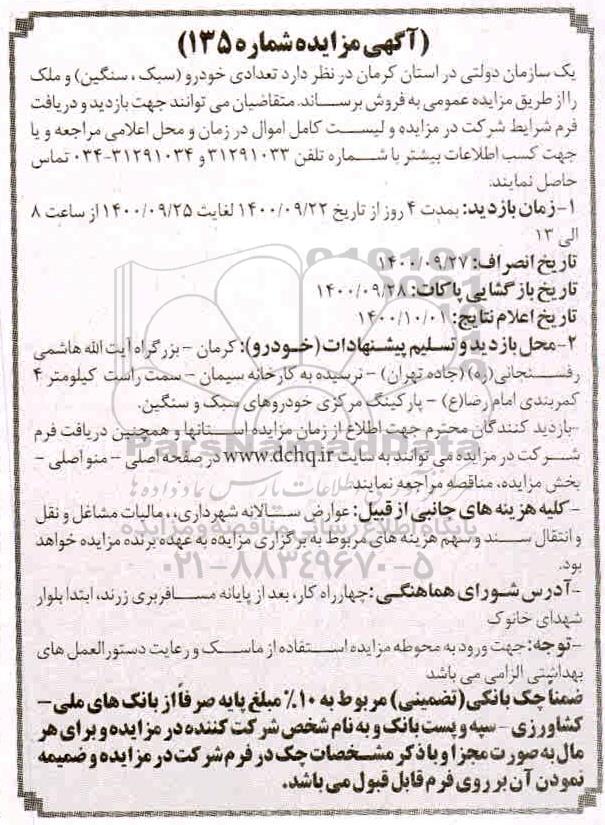 (آگهی مزایده شماره ۱۳۵)
یک سازمان دولتی در استان کرمان در نظر دارد تعدادی خودرو (سبک، سنگین) و ملک
را از طریق مزایده عمومی به فروش برساند. متقاضیان می توانند جهت بازدید و دریافت
فرم شرایط شرکت در مزایده و لیست کامل اموال در زمان و محل اعلامی مراجعه و یا
جهت کسب اطلاعات بیشتر با شماره تلفن ۳۱۲۹۱۰۳۳ و ۳۱۲۹۱۰۳۴-۰۳۴ تماس
حاصل نمایند.
۱-زمان بازدید: بمدت ۴ روز از تاریخ ۱۴۰۰/۰۹/۲۲ لغایت ۱۴۰۰/۰۹/۲۵ از ساعت ۸
الی ۱۳
تاریخ انصراف: ۱۴۰۰/۰۹/۲۷
تاریخ بازگشایی پاکات: ۱۴۰۰/۰۹/۲۸
تاریخ اعلام نتایج: ۱۴۰۰/۱۰/۰۱
۲-محل بازدید و تسلیم پیشنهادات (خودرو): کرمان - بزرگراه آیت الله هاشمی
رفسنجانی(ره) (جاده تهران) - نرسیده به کارخانه سیمان - سمت راست کیلومتر ۴
کمربندی امام رضا(ع) - پارکینگ مرکزی خودروهای سبک و سنگین.
-بازدید کنندگان محترم جهت اطلاع از زمان مزایده استانها و همچنین دریافت فرم
شرکت در مزایده می توانند به سایت www.dchq.ir در صفحه اصلی - منو اصلی -
بخش مزایده، مناقصه مراجعه نمایند.
- کلیه هزینه های جانبی از قبیل: عوارض سالانه شهرداری،، مالیات مشاغل و نقل
و انتقال سند و سهم هزینه های مربوط به برگزاری مزایده به عهده برنده مزایده خواهد
بود.
-آدرس شورای هماهنگی: چهارراه کار، بعد از پایانه مسافربری زرند، ابتدا بلوار
شهدای خانوک
-توجه: جهت ورود به محوطه مزایده استفاده از ماسک و رعایت دستورالعمل های
بهداشتی الزامی می باشد
ضمناً چک بانکی (تضمینی) مربوط به ۱۰٪ مبلغ پایه صرفاً از بانک های ملی -
کشاورزی - سپه و پست بانک و به نام شخص شرکت کننده در مزایده و برای هر
مال به صورت مجزا و با ذکر مشخصات چک در فرم شرکت در مزایده و ضمیمه
نمودن آن بر روی فرم قابل قبول می باشد.
ParsNamadData
پایگاه اطلاع رسانی مناقصه و مزایده
۰۲۱-۸۸۳۴۹۶۷۰-۵